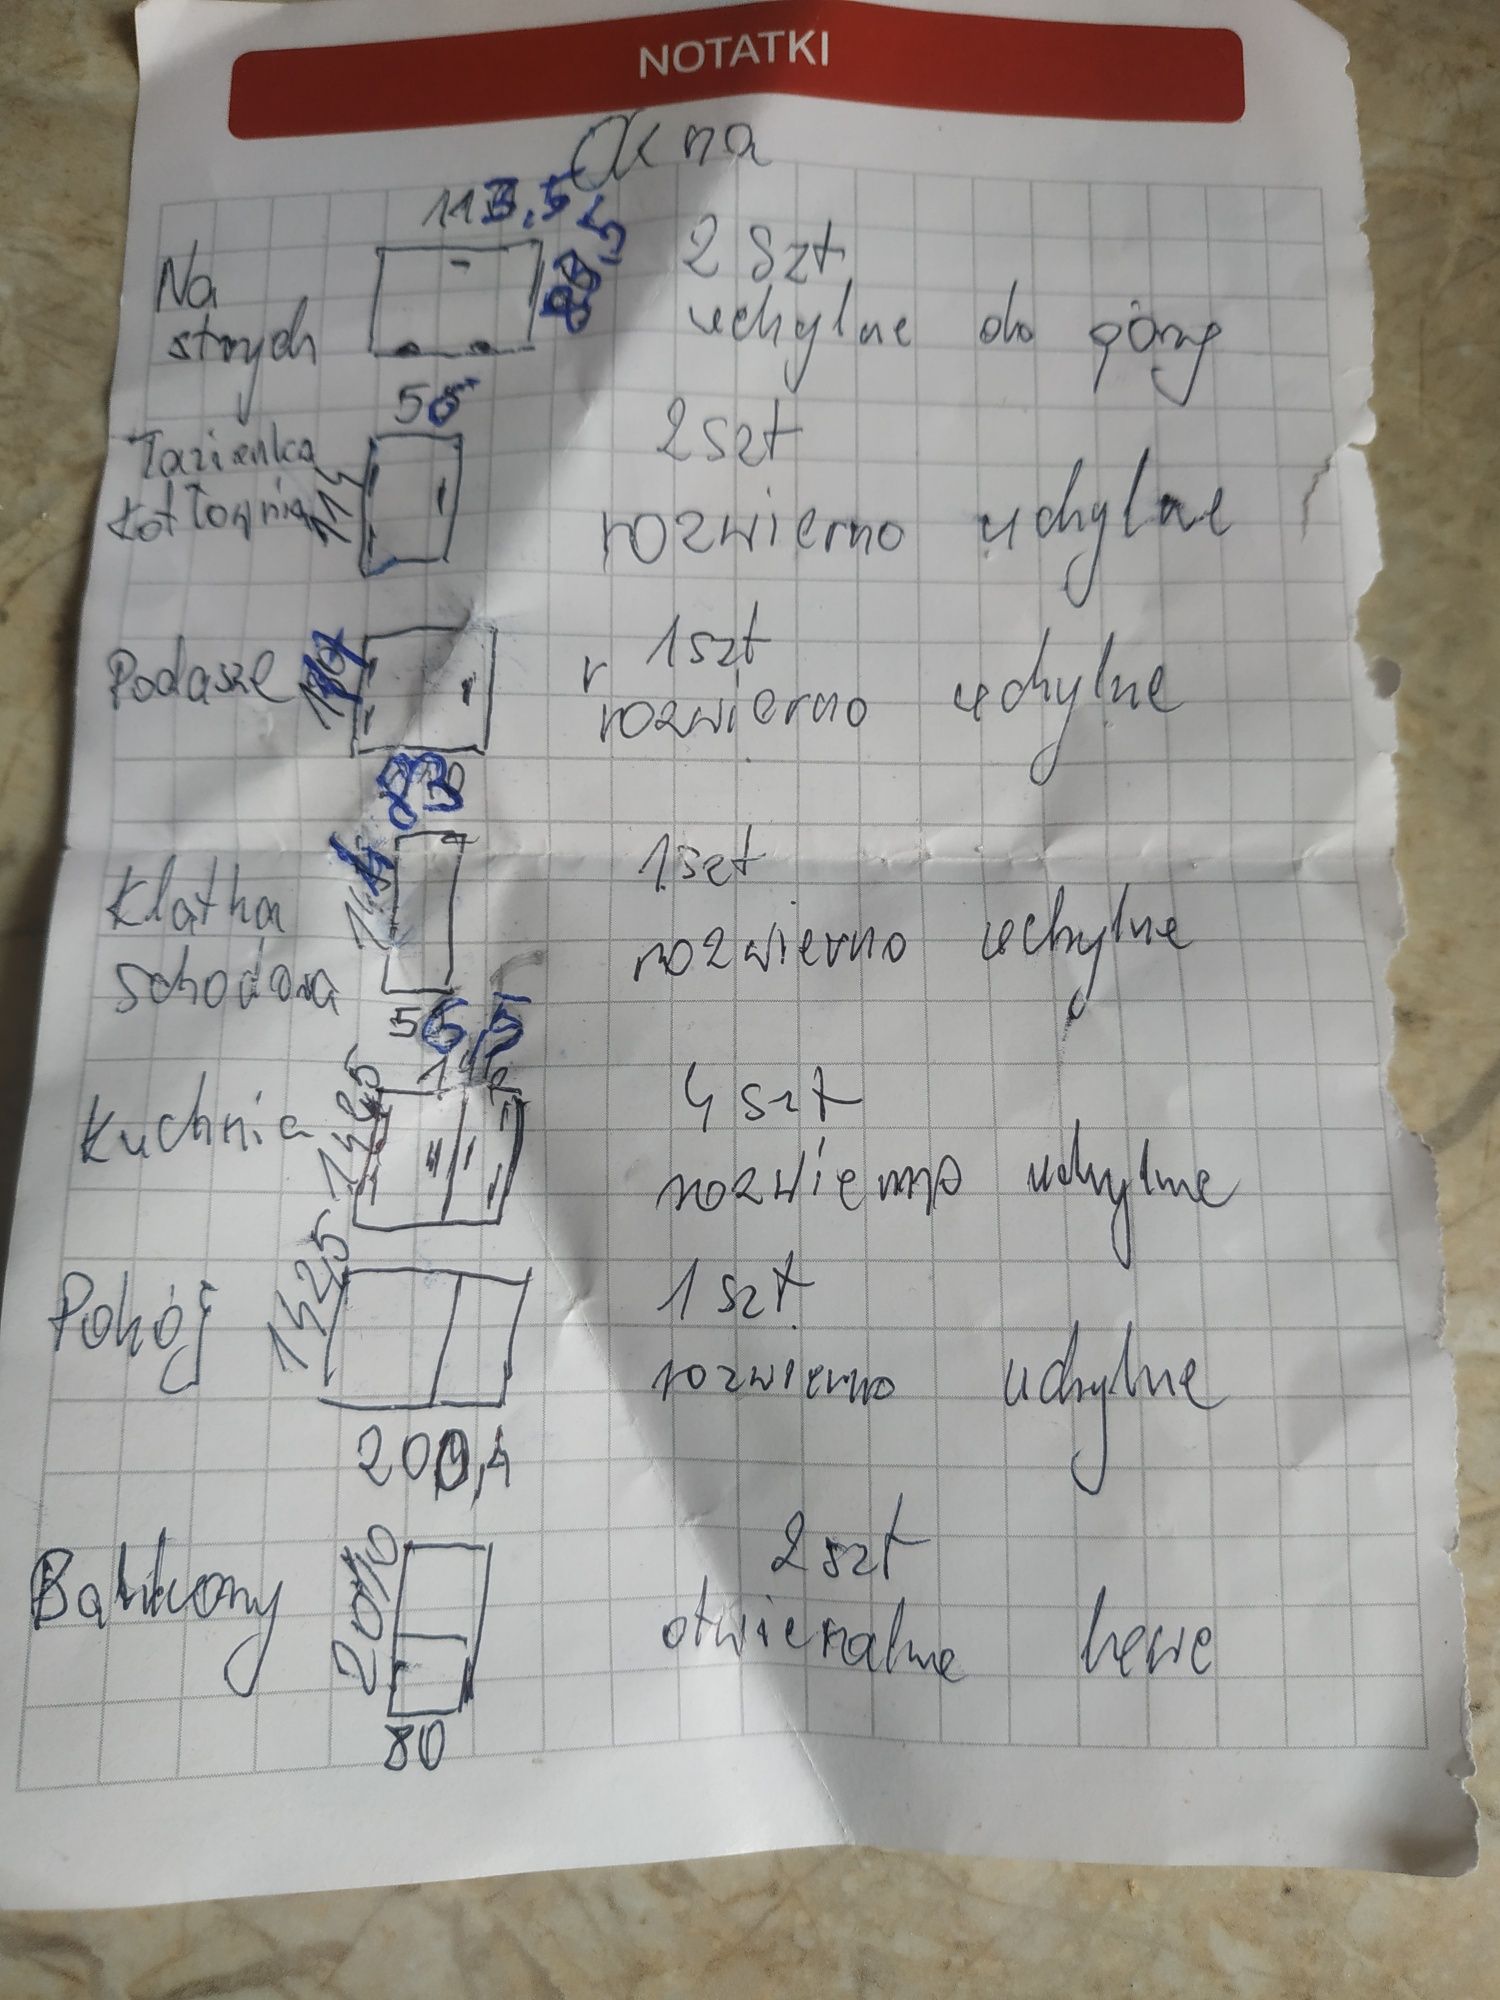 NOTATKI
Okna
113,5
Na
strych
2 szt
uchylne do góry
Łazienka
Kotłownia
114
2 szt
rozwierno uchylne
Podasze
83
1 szt
r
rozwierno uchylne
Klatka
schodowa
56,5
1 szt
rozwierno uchylne
Kuchnia
4 szt
rozwierno uchylne
Pokój
142,5
200,4
1 szt
rozwierno uchylne
Balkony
80
2 szt
otwieralne lewe